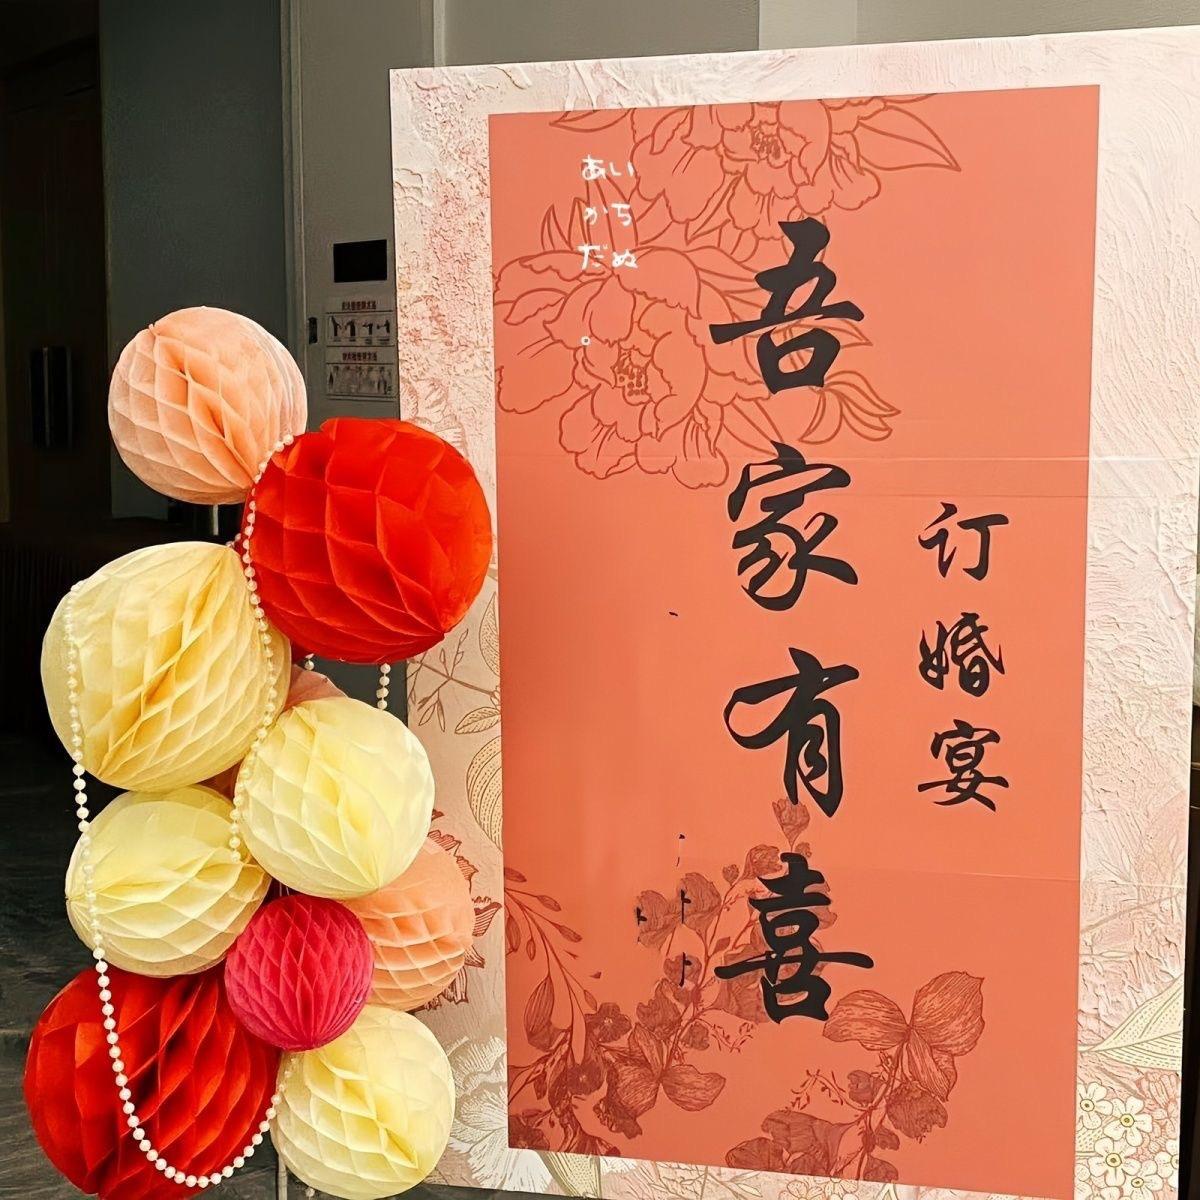 吾家有喜
订婚宴
あい
かち
だぬ
。